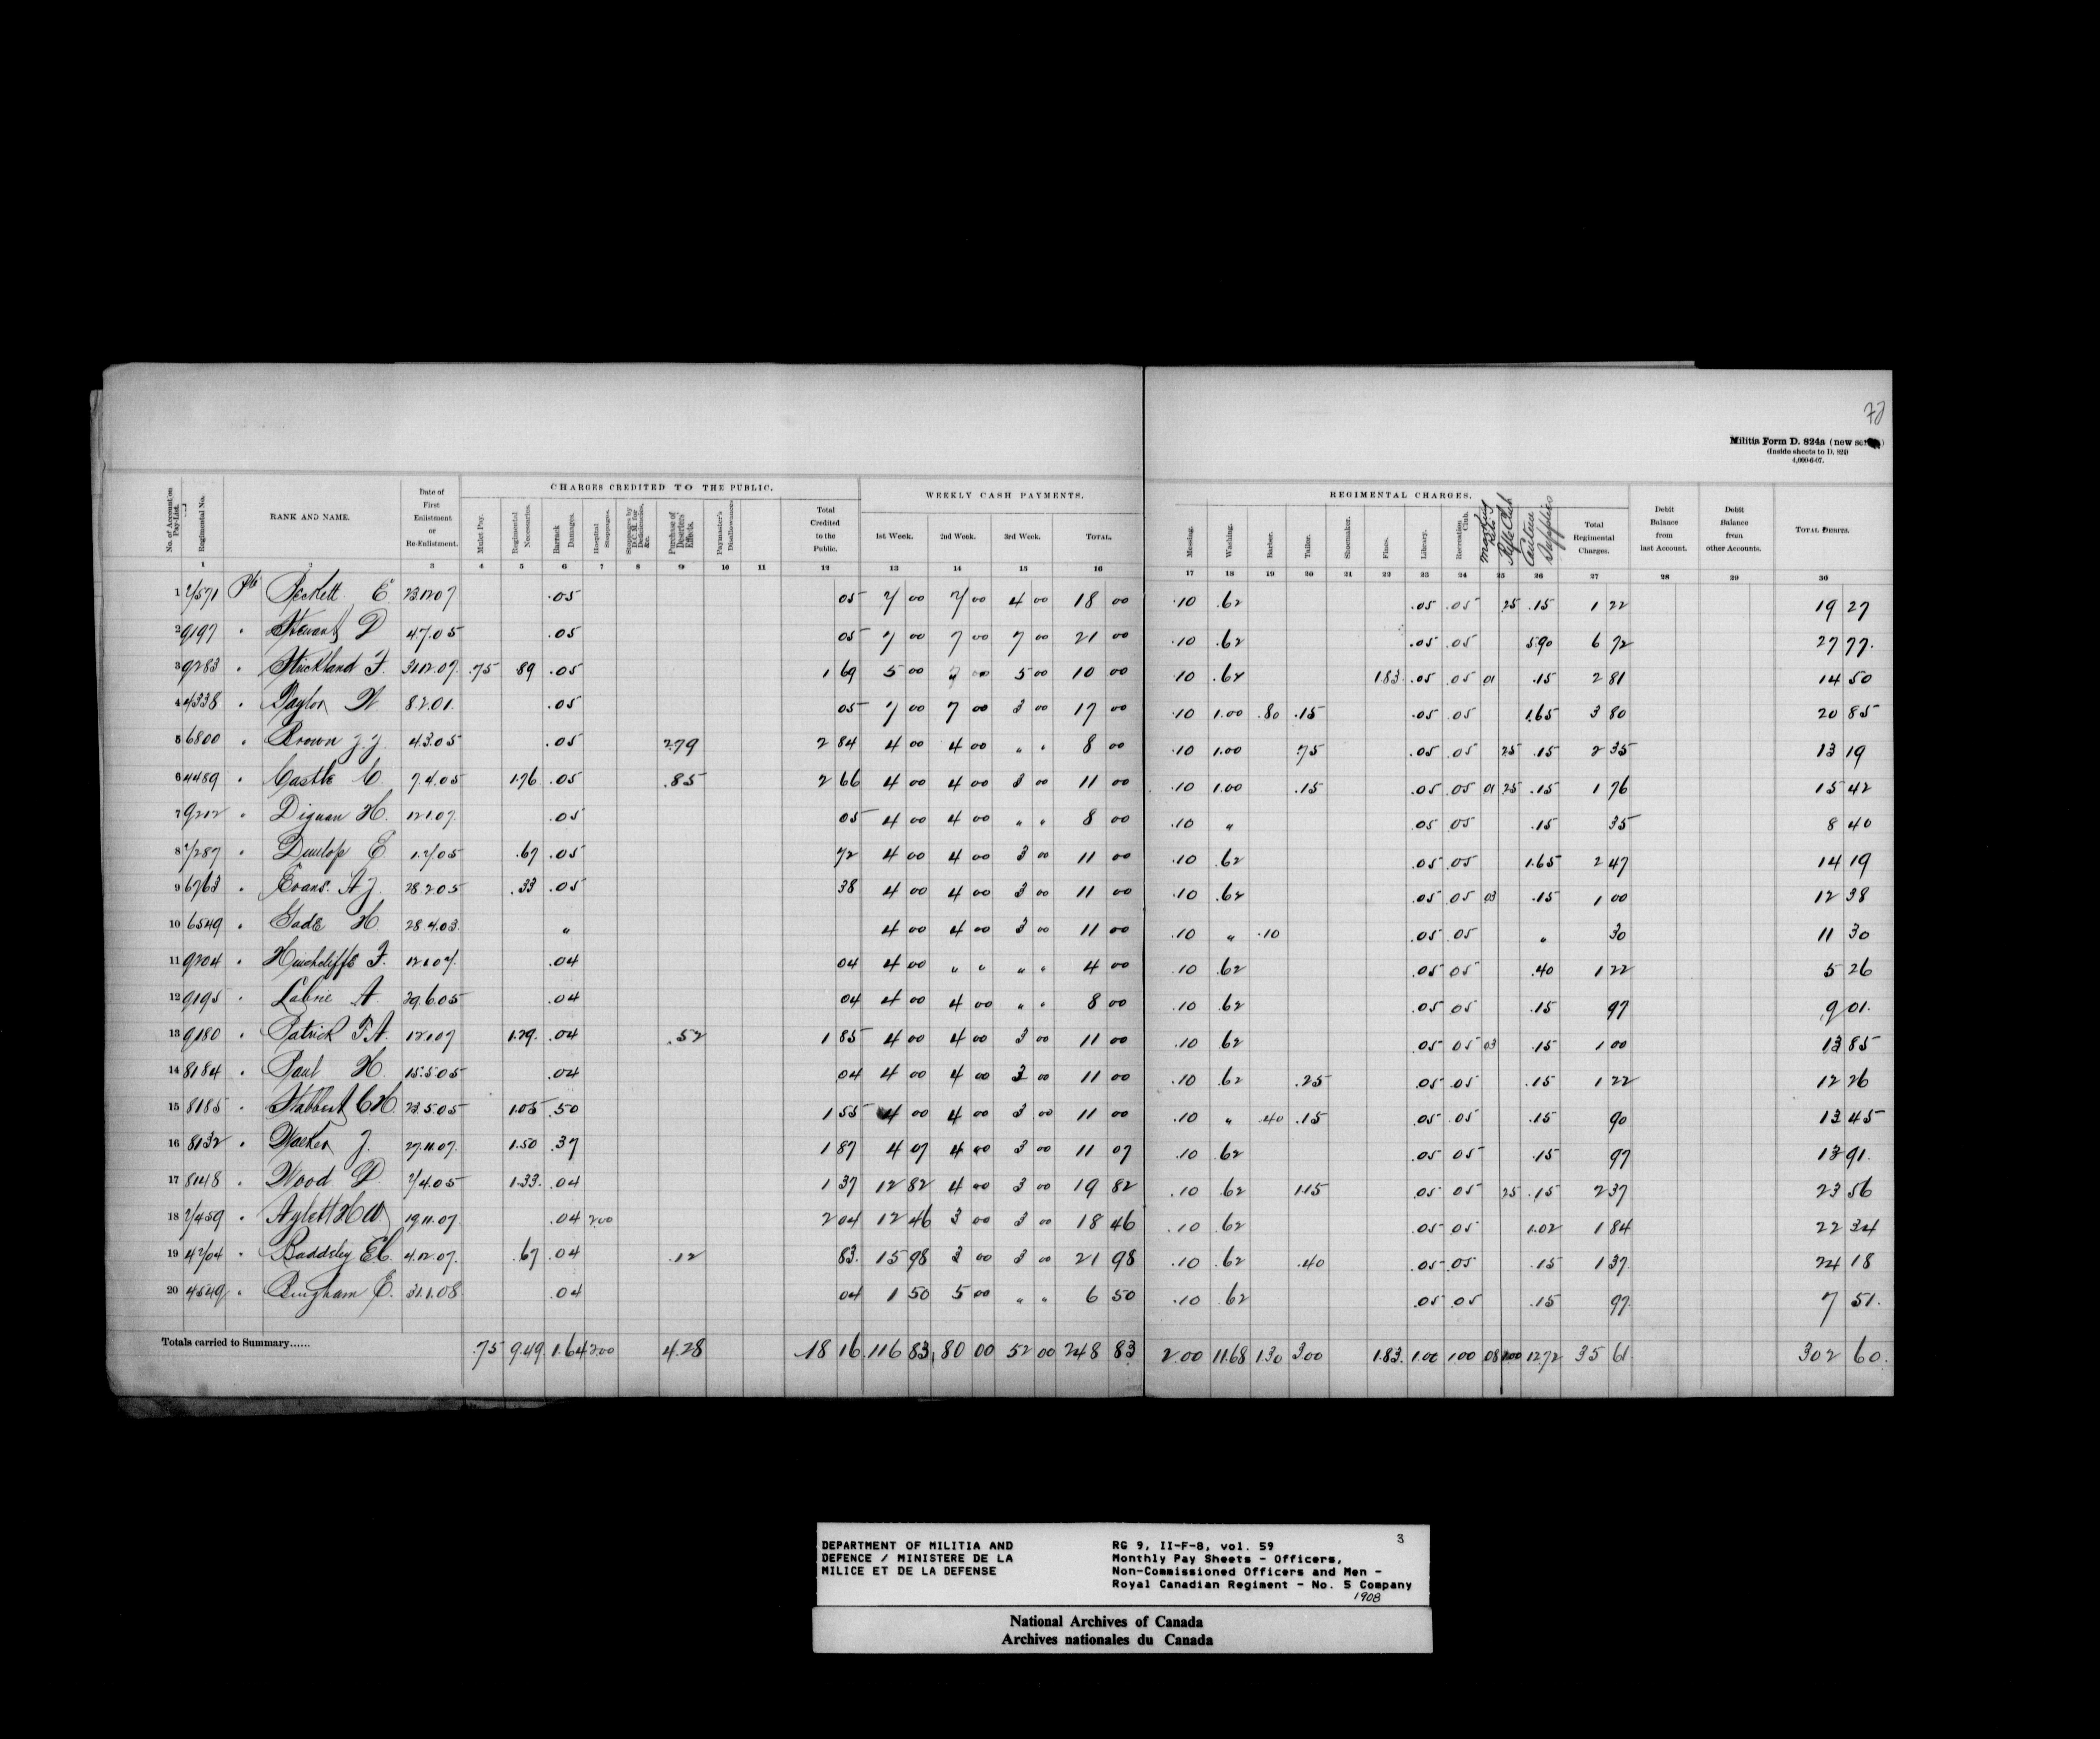 77
Militia Form D. 824a (new series)
(Inside sheets to D. 824)
4,000-6-07.
CHARGES CREDITED TO THE PUBLIC. WEEKLY CASH PAYMENTS. REGIMENTAL CHARGES.
No. of Account on Pay-List. Regimental No. RANK AND NAME. Date of First Enlistment or Re-Enlistment. Mulct Pay. Regimental Necessaries. Barrack Damages. Hospital Stoppages. Stoppages by D.C.M. for Deficiencies, &c. Purchase of Deserters' Effects. Paymaster's Disallowances Total Credited to the Public. 1st Week. 2nd Week. 3rd Week. TOTAL. Messing. Washing. Barber. Tailor. Shoemaker. Fines. Library. Recreation Club. Marking Kits Rifle Club Canteen Supplies Total Regimental Charges. Debit Balance from last Account. Debit Balance from other Accounts. TOTAL DEBITS.
1 2 3 4 5 6 7 8 9 10 11 12 13 14 15 16 17 18 19 20 21 22 23 24 25 26 27 28 29 30
1 7571 Pte Beckett E 23.12.07 .05 05 7 00 7 00 4 00 18 00 .10 .62 .05 .05 25 .15 1 22 19 27
2 9197 " Stewart D 4.7.05 .05 05 7 00 7 00 7 00 21 00 .10 .62 .05 .05 5.90 6 72 27 77.
3 9283 " Strickland F. 31.12.07. .75 89 .05 1 69 5 00 " " 5 00 10 00 .10 .62 1.83 .05 .05 01 .15 2 81 14 50
4 4338 " Taylor W 8.2.01. .05 05 7 00 7 00 3 00 17 00 .10 1.00 .80 .15 .05 .05 1.65 3 80 20 85
5 6800 " Brown J.J. 4.3.05 .05 2.79 2 84 4 00 4 00 " " 8 00 .10 1.00 .75 .05 .05 25 .15 2 35 13 19
6 4489 " Castle C. 7.4.05 1.76 .05 .85 2 66 4 00 4 00 3 00 11 00 .10 1.00 .15 .05 .05 01 25 .15 1 76 15 42
7 9212 " Dignan H. 12.1.07. .05 05 4 00 4 00 " " 8 00 .10 " .05 .05 .15 35 8 40
8 7287 " Dunlop E 1.7.05 .67 .05 72 4 00 4 00 3 00 11 00 .10 .62 .05 .05 1.65 2 47 14 19
9 6763 " Evans. A.J. 28.2.05 .33 .05 38 4 00 4 00 3 00 11 00 .10 .62 .05 .05 03 .15 1 00 12 38
10 6549 " Gade H. 28.4.03. " 4 00 4 00 3 00 11 00 .10 " .10 .05 .05 " 30 11 30
11 9204 " Hinchcliffe F. 12.1.07. .04 04 4 00 " " " " 4 00 .10 .62 .05 .05 .40 1 22 5 26
12 9195 " Labrie A. 29.6.05 .04 04 4 00 4 00 " " 8 00 .10 .62 .05 .05 .15 97 9 01.
13 9180 " Patrick F.A. 12.1.07 1.29. .04 .52 1 85 4 00 4 00 3 00 11 00 .10 .62 .05 .05 03 .15 1 00 13 85
14 8184 " Paul H. 15.5.05 .04 04 4 00 4 00 3 00 11 00 .10 .62 .25 .05 .05 .15 1 22 12 26
15 8185 " C.H. 23.5.05 1.05 .50 1 55 4 00 4 00 3 00 11 00 .10 " .40 .15 .05 .05 .15 90 13 45
16 8132 " Walker J. 27.11.07. 1.50 .37 1 87 4 07 4 00 3 00 11 07 .10 .62 .05 .05 .15 97 13 91.
17 8148 " Wood D. 7.4.05 1.33. .04 1 37 12 82 4 00 3 00 19 82 .10 .62 1.15 .05 .05 25 .15 2 37 23 56
18 7459 " Aylett H.W. 19.11.07. .04 2.00 2 04 12 46 3 00 3 00 18 46 .10 .62 .05 .05 1.02 1 84 22 34
19 4704 " Baddeley E.C. 4.12.07. .67 .04 .12 83. 15 98 3 00 3 00 21 98 .10 .62 .40 .05 .05 .15 1 37. 24 18
20 4549 " Bingham E. 31.1.08. .04 04 1 50 5 00 " " 6 50 .10 .62 .05 .05 .15 97. 7 51.
Totals carried to Summary...... .75 9.49 1.64 2.00 4.28 18 16. 116 83 80 00 52 00 248 83 2.00 11.68 1.30 3.00 1.83. 1.00 1.00 08 1.00 12.72 35 61. 302 60.
DEPARTMENT OF MILITIA AND
DEFENCE / MINISTERE DE LA
MILICE ET DE LA DEFENSE
RG 9, II-F-8, vol. 59 3
Monthly Pay Sheets - Officers,
Non-Commissioned Officers and Men -
Royal Canadian Regiment - No. 5 Company
1908
National Archives of Canada
Archives nationales du Canada